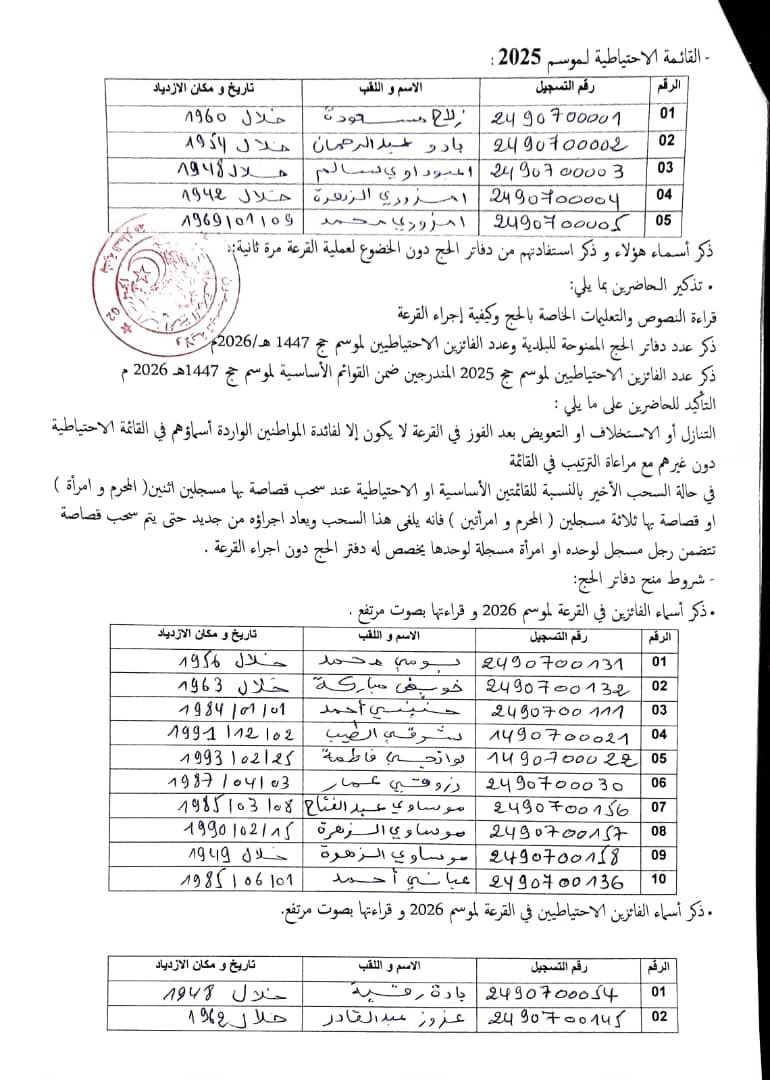 - القائمة الاحتياطية لموسم 2025 :
الرقم رقم التسجيل الاسم و اللقب تاريخ و مكان الازدياد
01 2490700001 زلاح مسعودة خلال 1960
02 2490700002 بادو عبدالرحمان خلال 1954
03 2490700003 اعبوداوي سالم خلال 1948
04 2490700004 امزوري الزهرة خلال 1942
05 2490700005 امزوري محمد 1969/01/09
ذكر أسماء هؤلاء و ذكر استفادتهم من دفاتر الحج دون الخضوع لعملية القرعة مرة ثانية:
• تذكير الحاضرين بما يلي:
قراءة النصوص والتعليمات الخاصة بالحج وكيفية إجراء القرعة
ذكر عدد دفاتر الحج الممنوحة للبلدية وعدد الفائزين الاحتياطيين لموسم حج 1447 هـ/2026م
ذكر عدد الفائزين الاحتياطيين لموسم حج 2025 المندرجين ضمن القوائم الأساسية لموسم حج 1447هـ 2026 م
التأكيد للحاضرين على ما يلي :
التنازل أو الاستخلاف او التعويض بعد الفوز في القرعة لا يكون إلا لفائدة المواطنين الواردة أسماؤهم في القائمة الاحتياطية
دون غيرهم مع مراعاة الترتيب في القائمة
في حالة السحب الأخير بالنسبة للقائمتين الأساسية او الاحتياطية عند سحب قصاصة بها مسجلين اثنين( المحرم و امرأة )
او قصاصة بها ثلاثة مسجلين ( المحرم و امرأتين ) فانه يلغى هذا السحب ويعاد اجراؤه من جديد حتى يتم سحب قصاصة
تتضمن رجل مسجل لوحده او امرأة مسجلة لوحدها يخصص له دفتر الحج دون اجراء القرعة .
- شروط منح دفاتر الحج:
• ذكر أسماء الفائزين في القرعة لموسم 2026 و قراءتها بصوت مرتفع .
الرقم رقم التسجيل الاسم و اللقب تاريخ و مكان الازدياد
01 2490700131 بوسي محمد خلال 1956
02 2490700132 مباركة خلال 1963
03 2490700111 حنيني أحمد 1984/01/01
04 1490700021 شرقي الطيب 1991/12/02
05 1490700022 لواتحي فاطمة 1993/02/25
06 2490700030 زروقي عمار 1987/04/03
07 2490700156 موساوي عبدالفتاح 1985/03/08
08 2490700157 موساوي الزهرة 1990/02/15
09 2490700158 موساوي الزهرة خلال 1949
10 2490700136 عباني أحمد 1985/06/01
• ذكر أسماء الفائزين الاحتياطيين في القرعة لموسم 2026 و قراءتها بصوت مرتفع.
الرقم رقم التسجيل الاسم و اللقب تاريخ و مكان الازدياد
01 2490700054 بادة رقية خلال 1948
02 2490700145 عزوز عبدالقادر خلال 1962